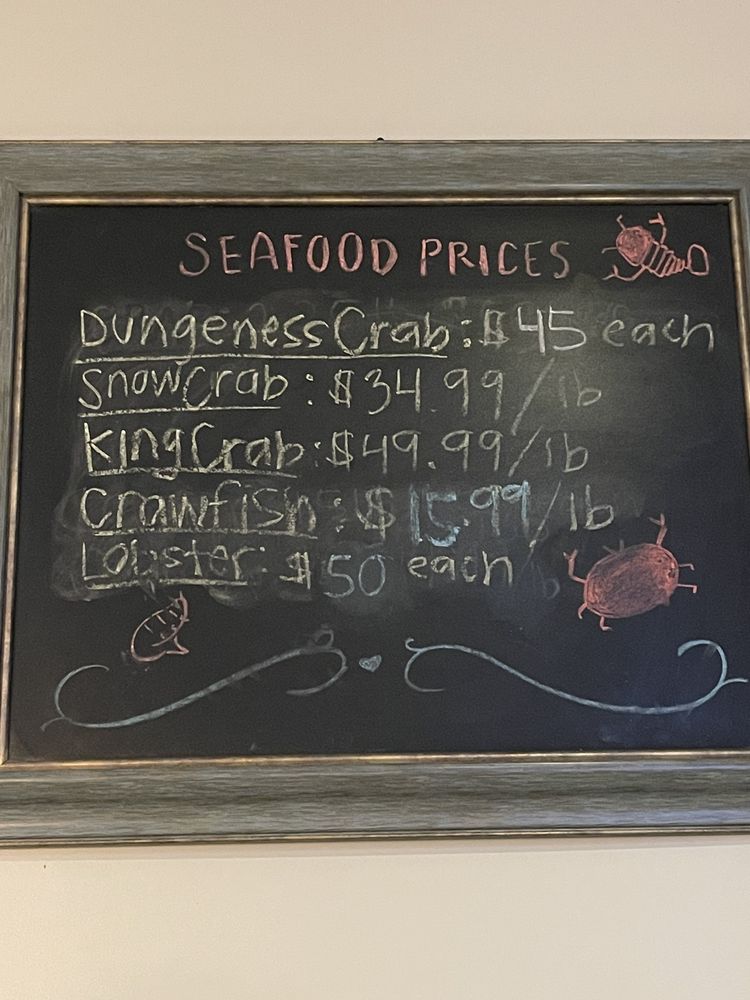 SEAFOOD PRICES
Dungeness Crab: $45 each
Snow Crab: $34.99/lb
King Crab: $49.99/lb
Crawfish: $15.99/lb
Lobster: $50 each